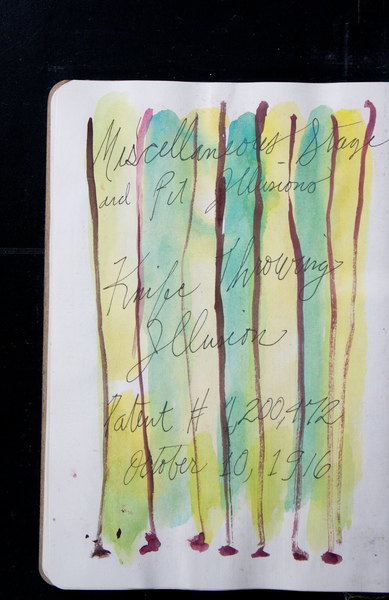 Miscellaneous Stage
and Pit Illusions
Knife Throwing
Illusion
Patent # 1,200,472
October 10, 1916